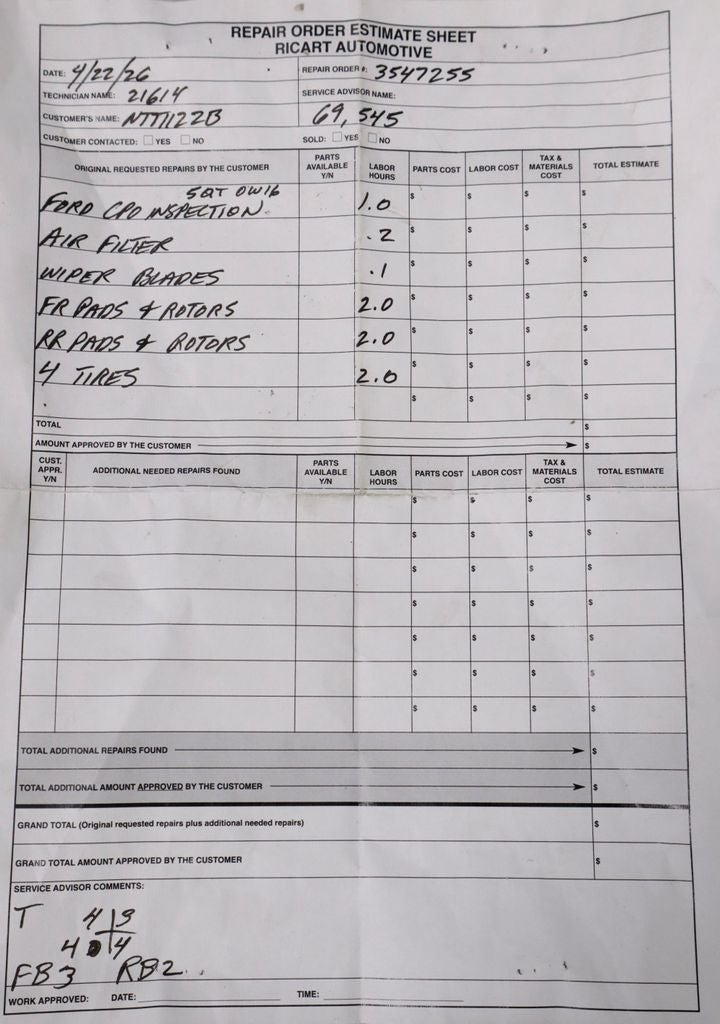 REPAIR ORDER ESTIMATE SHEET
RICART AUTOMOTIVE
DATE: 4/22/26 REPAIR ORDER #: 3547255
TECHNICIAN NAME: 21614 SERVICE ADVISOR NAME:
CUSTOMER'S NAME: NTT1122B 69,545
CUSTOMER CONTACTED: YES NO SOLD: YES NO
ORIGINAL REQUESTED REPAIRS BY THE CUSTOMER PARTS AVAILABLE Y/N LABOR HOURS PARTS COST LABOR COST TAX & MATERIALS COST TOTAL ESTIMATE
5QT OW16
FORD CPO INSPECTION 1.0 $ $ $ $
AIR FILTER .2 $ $ $ $
WIPER BLADES .1 $ $ $ $
FR PADS & ROTORS 2.0 $ $ $ $
RR PADS & ROTORS 2.0 $ $ $ $
4 TIRES 2.0 $ $ $ $
$ $ $ $
TOTAL $
AMOUNT APPROVED BY THE CUSTOMER $
CUST. APPR. Y/N ADDITIONAL NEEDED REPAIRS FOUND PARTS AVAILABLE Y/N LABOR HOURS PARTS COST LABOR COST TAX & MATERIALS COST TOTAL ESTIMATE
$ $ $ $
$ $ $ $
$ $ $ $
$ $ $ $
$ $ $ $
$ $ $ $
$ $ $ $
TOTAL ADDITIONAL REPAIRS FOUND $
TOTAL ADDITIONAL AMOUNT APPROVED BY THE CUSTOMER $
GRAND TOTAL (Original requested repairs plus additional needed repairs) $
GRAND TOTAL AMOUNT APPROVED BY THE CUSTOMER $
SERVICE ADVISOR COMMENTS:
T 4 3
4 4
FB3 RB2
WORK APPROVED: DATE: TIME: